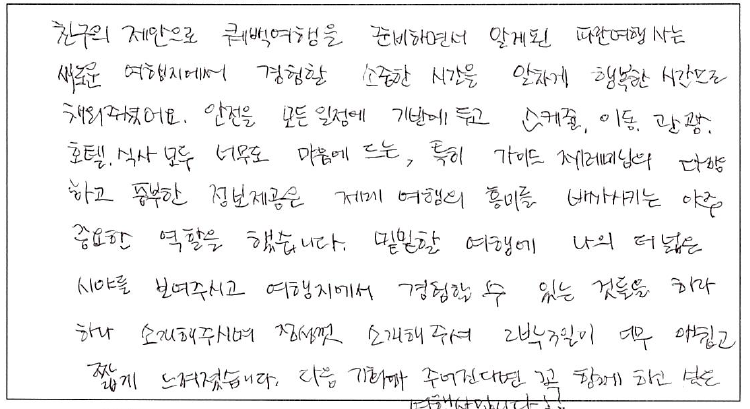 친구의 제안으로 퀘벡여행을 준비하면서 알게된 파란여행사는
새로운 여행지에서 경험할 소중한 시간을 알차게 행복한 시간으로
채워주셨어요. 안전을 모든 일정에 기반에 두고 스케줄, 이동, 관광,
호텔, 식사 모두 너무도 마음에 드는, 특히 가이드 제레미님의 다양
하고 풍부한 정보제공은 제게 여행의 흥미를 배가시키는 아주
중요한 역할을 했습니다. 밋밋할 여행에 나의 더 넓은
시야를 보여주시고 여행지에서 경험할 수 있는 것들을 하나
하나 소개해주시며 정성껏 소개해주셔 2박3일이 너무 아쉽고
짧게 느껴졌습니다. 다음 기회가 주어진다면 꼭 함께 하고 싶은
여행사입니다